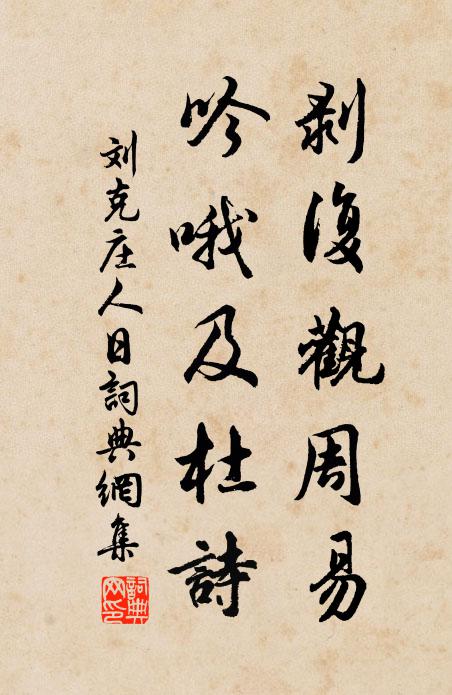 剥復觀周易
吟哦及杜詩
刘克庄人日詞典網集
詞典網印